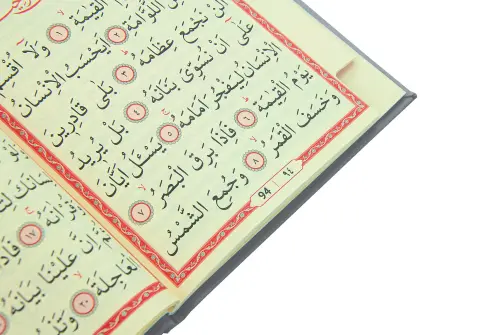 الْقِيٰمَةِۙ ١ وَلَآ اُقْسِمُ
اللَّوَّامَةِ ٢ اَيَحْسَبُ الْاِنْسَانُ
نَجْمَعَ عِظَامَهُ ٣ بَلٰى قَادِرِينَ
عَلٰٓى اَنْ نُسَوِّىَ بَنَانَهُ ٤ بَلْ يُرِيدُ
الْاِنْسَانُ لِيَفْجُرَ اَمَامَهُ ٥ يَسْـَٔلُ اَيَّانَ
يَوْمُ الْقِيٰمَةِ ٦ فَاِذَا بَرِقَ الْبَصَرُ ٧
وَخَسَفَ الْقَمَرُ ٨ وَجُمِعَ الشَّمْسُ
94 ٩٤
ثُمَّ اِنَّ عَلَيْنَا بَيَانَهُ
الْعَاجِلَةَ ٢٠